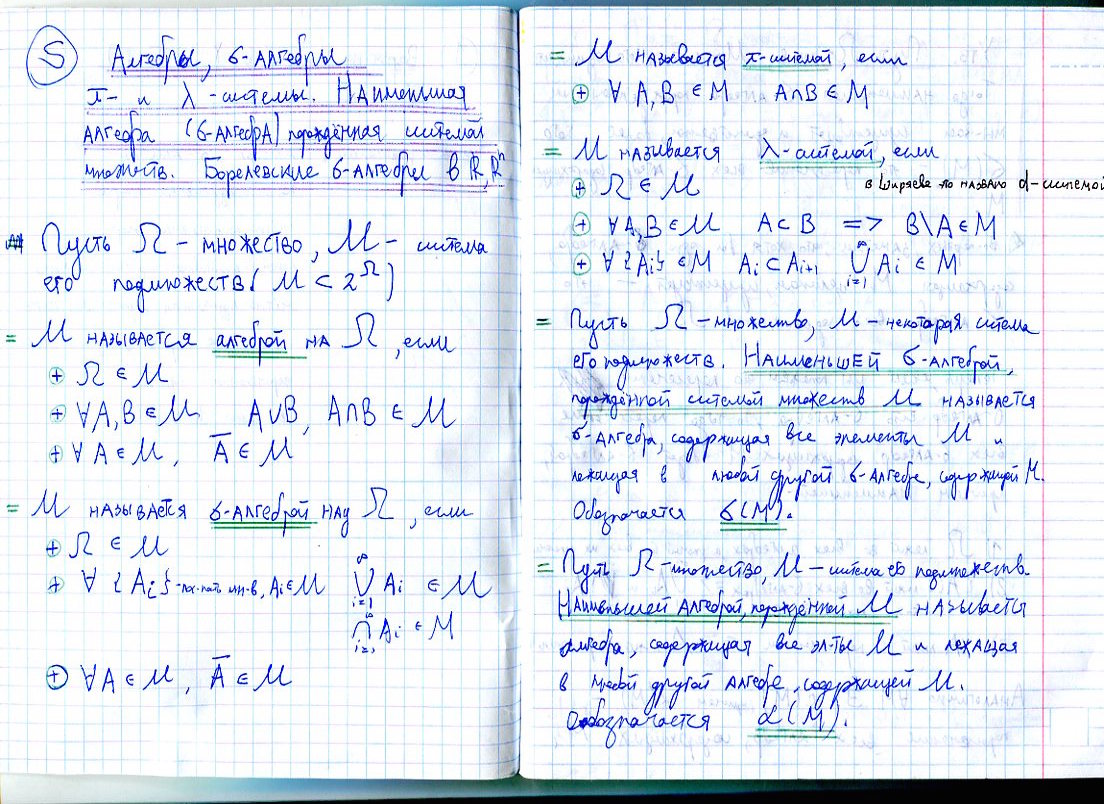 5
Алгебры, σ-алгебры
π- и λ-системы. Наименьшая
алгебра (σ-алгебра) порождённая системой
множеств. Борелевские σ-алгебры в ℝ, ℝⁿ
Пусть Ω - множество, M - система
его подмножеств (M ⊂ 2^Ω)
= M называется алгеброй на Ω, если
⊕ Ω ∈ M
⊕ ∀A,B ∈ M A∪B, A∩B ∈ M
⊕ ∀A ∈ M, A̅ ∈ M
= M называется σ-алгеброй над Ω, если
⊕ Ω ∈ M
⊕ ∀ {Aᵢ} - пос-ть мн-в, Aᵢ ∈ M ⋃_{i=1}^∞ Aᵢ ∈ M
⋂_{i=1}^∞ Aᵢ ∈ M
⊕ ∀A ∈ M, A̅ ∈ M
= M называется π-системой, если
⊕ ∀ A,B ∈ M A∩B ∈ M
= M называется λ-системой, если
⊕ Ω ∈ M в Ширяеве названо d-системой
⊕ ∀A,B ∈ M A ⊂ B => B\A ∈ M
⊕ ∀ {Aᵢ} ∈ M Aᵢ ⊂ Aᵢ₊₁ ⋃_{i=1}^∞ Aᵢ ∈ M
= Пусть Ω - множество, M - некоторая система
его подмножеств. Наименьшей σ-алгеброй,
порождённой системой множеств M называется
σ-алгебра, содержащая все элементы M и
лежащая в любой другой σ-алгебре, содержащей M.
Обозначается σ(M).
= Пусть Ω - множество, M - система его подмножеств.
Наименьшей алгеброй, порождённой M называется
алгебра, содержащая все эл-ты M и лежащая
в любой другой алгебре, содержащей M.
Обозначается α(M).